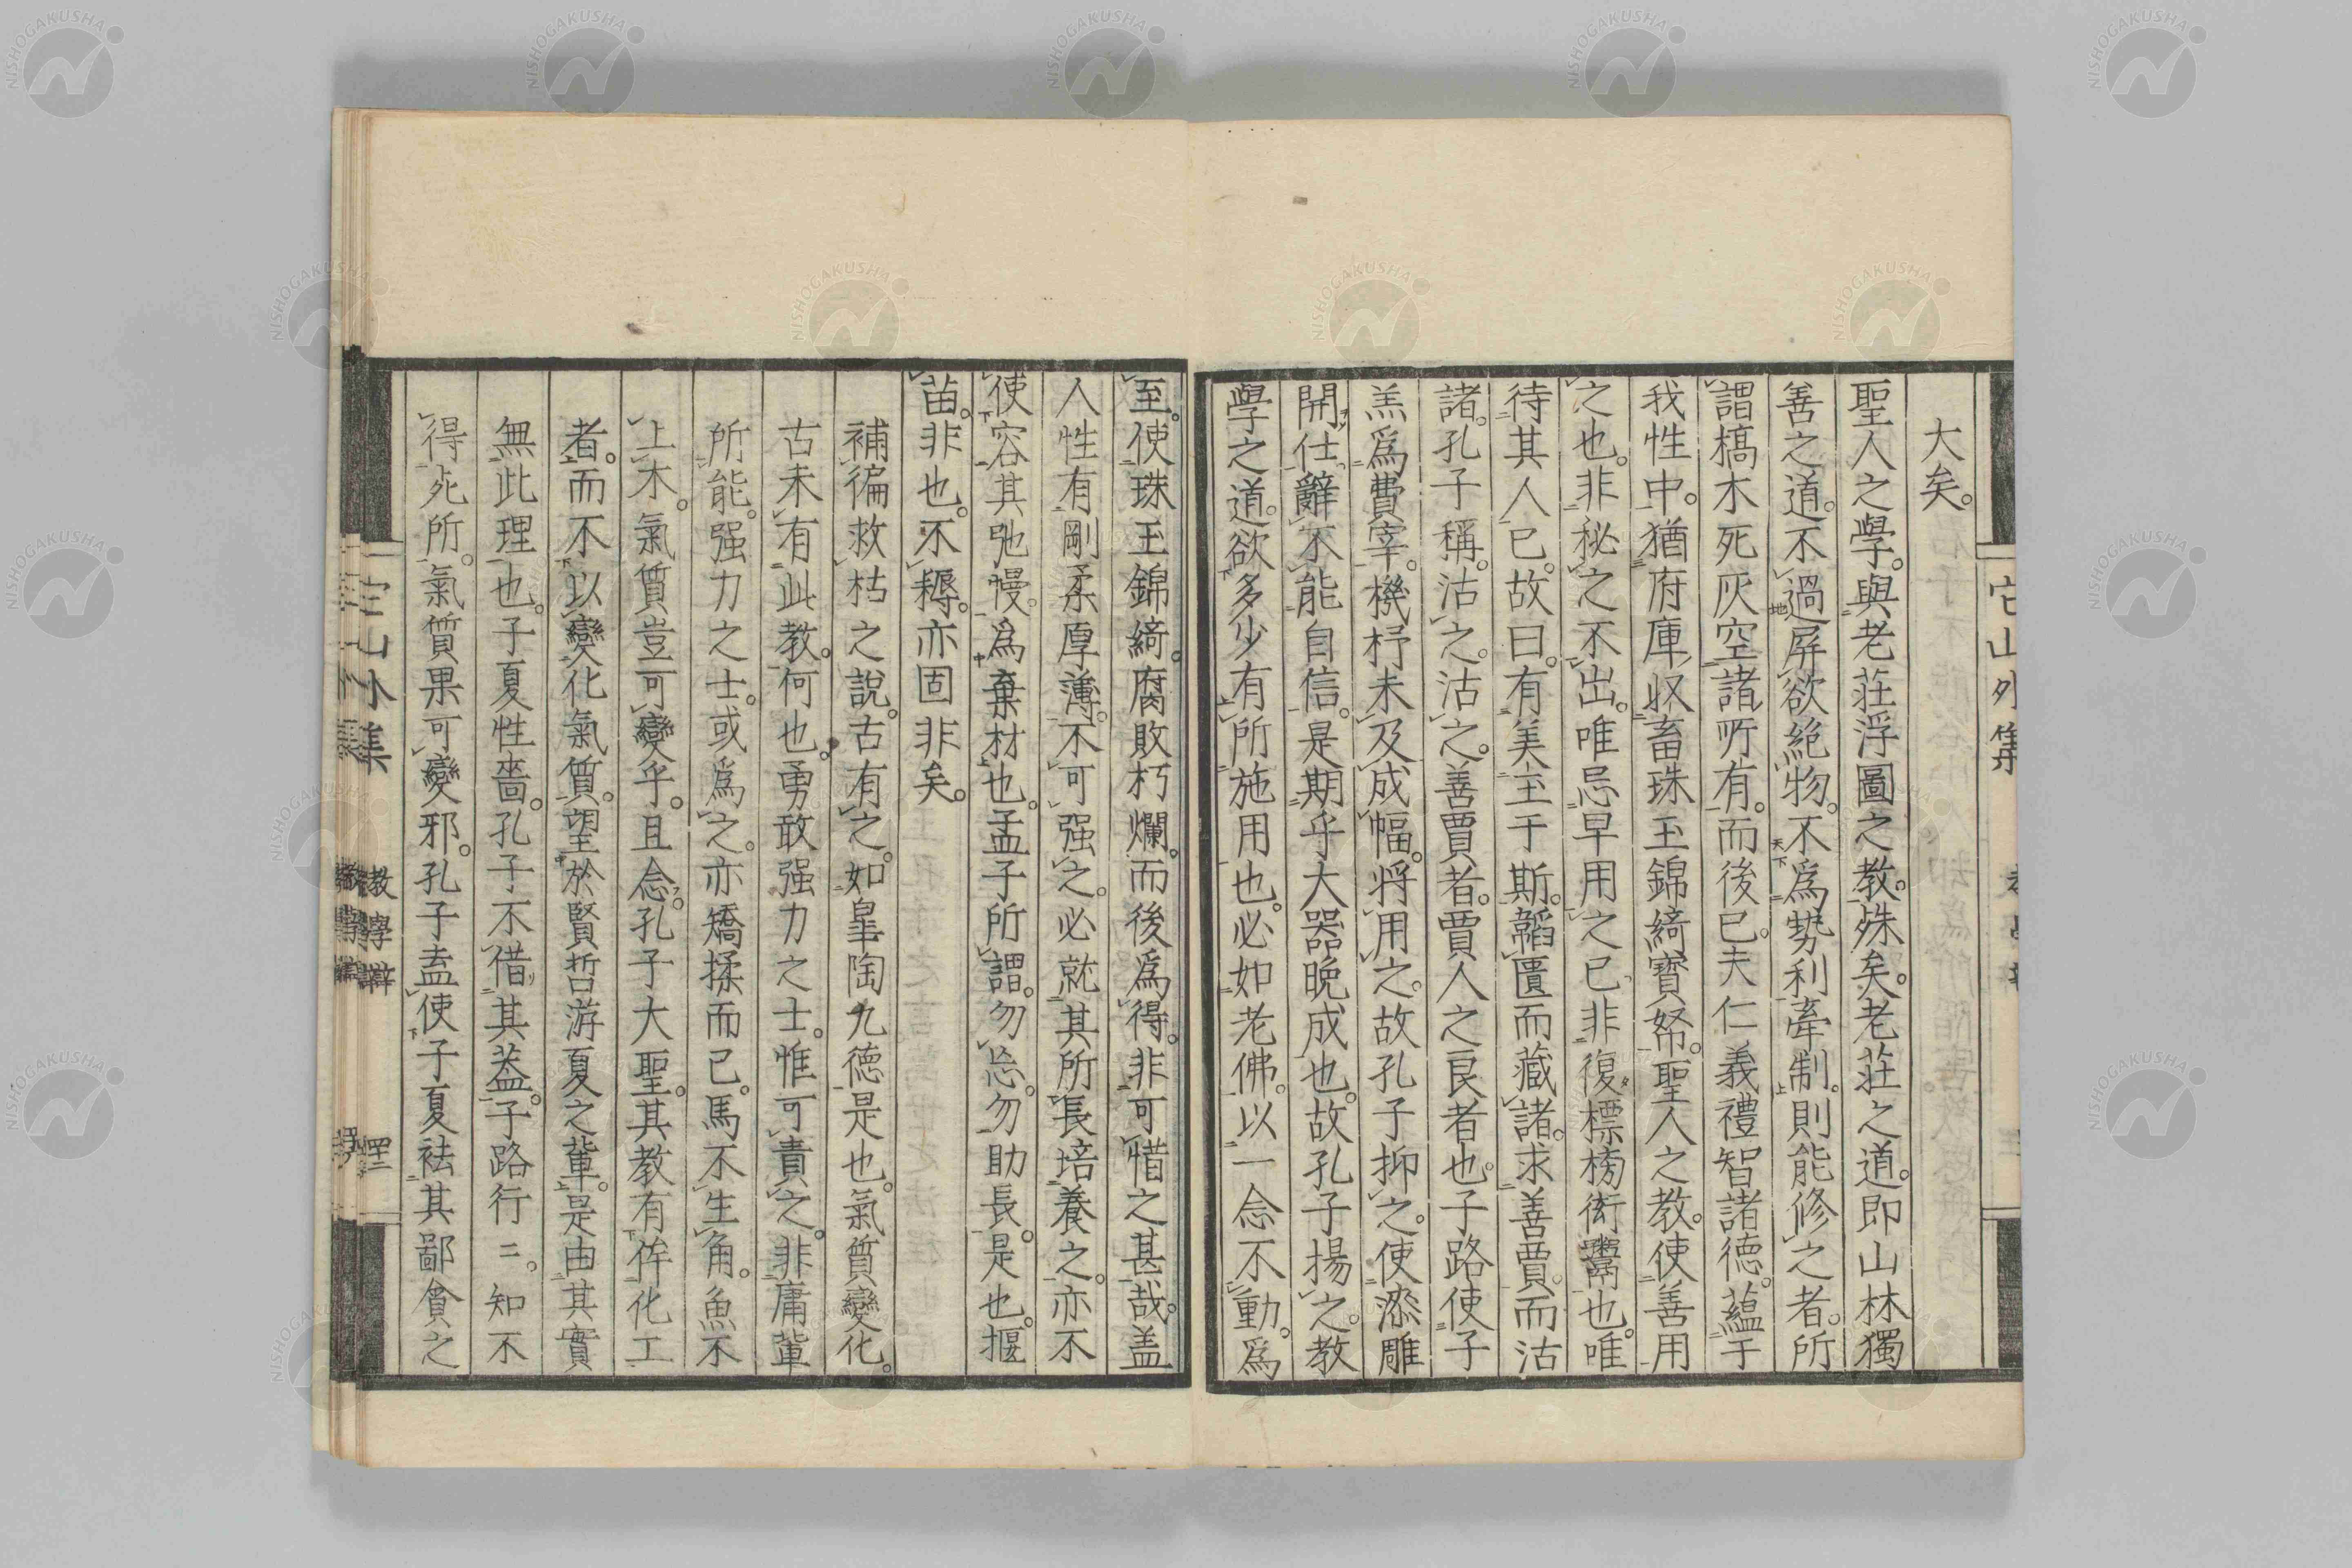 大矣。
聖人之學。與老莊浮圖之教。殊矣。老莊之道。即山林獨
善之道。不過屏欲絶物。不爲勢利牽制。則能修之者。所
謂槁木死灰空諸所有。而後已。夫仁義禮智諸德。蘊于
我性中。猶府庫收畜珠玉錦綺寶帑。聖人之教。使善用
之也。非秘之不出。唯忌早用之已。非復標榜衒鬻也。唯
待其人已。故曰。有美玉于斯。韞匵而藏諸。求善賈而沽
諸。孔子稱。沽之。沽之。善賈者。賈人之良者也。子路使子
羔爲費宰。機杼未及成幅。將用之。故孔子抑之。使漆雕
開仕。辭不能自信。是期乎大器晩成也。故孔子揚之。教
學之道。欲多少有所施用也。必如老佛。以一念不動。爲
至。使珠玉錦綺。腐敗朽爛。而後爲得。非可惜之甚哉。盖
人性有剛柔厚薄。不可强之。必就其所長培養之。亦不
使容其弛慢。爲棄材也。孟子所謂。勿忘。勿助長。是也。揠
苗。非也。不耨。亦固非矣。
補徧救枯之說。古有之。如皐陶九德是也。氣質變化。
古未有此教。何也。勇敢强力之士。惟可責之。非庸輩
所能。强力之士。或爲之。亦矯揉而已。馬不生角。魚不
上木。氣質豈可變乎。且念。孔子大聖。其教有侔化工
者。而不以變化氣質。望於賢哲游夏之輩。是由其實
無此理也。子夏性嗇。孔子不借其葢。子路行二。知不
得死所。氣質果可變邪。孔子盍使子夏袪其鄙貪之
它山外集
教學辨